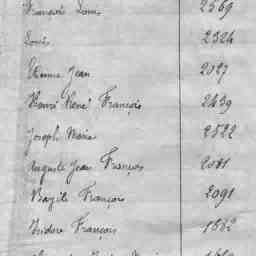 François Louis 2569
Louis 2324
Etienne Jean 2027
Henri René François 2439
Joseph Marie 2522
Auguste Jean François 2081
Bazile François 2091
Isidore François 1582